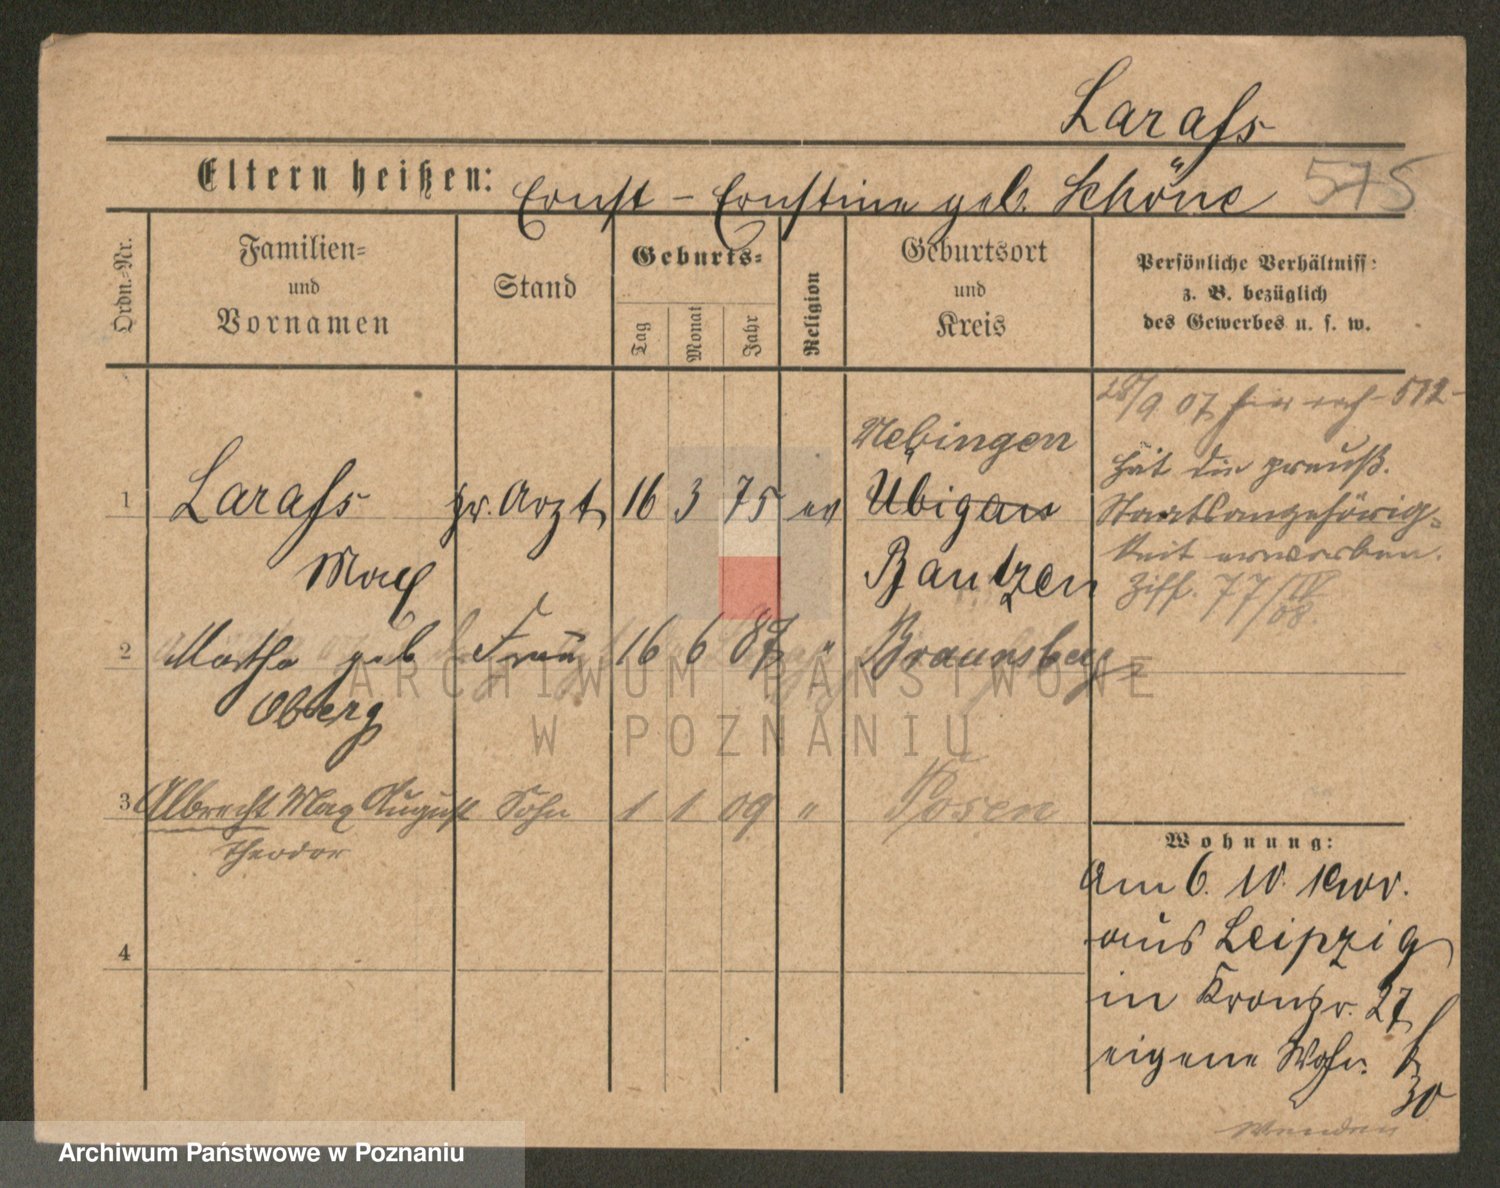 Larass
Eltern heißen: Ernst – Ernstine geb. Schöne 575
Ordn.-Nr.
Familien-
und
Vornamen
Stand
Geburts-
Tag
Monat
Jahr
Religion
Geburtsort
und
Kreis
Persönliche Verhältniss:
z. B. bezüglich
des Gewerbes u. s. w.
28/9 07 512
Nebingen
Hat die preuß.
1 Larass pr. Arzt 16 3 75 ev Ubigau
Staatsangehörig-
Max Bautzen
keit erworben.
Ziff. 77/IV 08.
2 Martha geb Frau 16 6 87 " Braunsberg
Oberg
ARCHIWUM PAŃSTWOWE
W POZNANIU
3 Albrecht Max August Sohn 1 1 09 " Posen
Theodor
4
Wohnung:
Am 6. 10.
aus Leipzig
in Kronpr. 27
eigene Wohn.
30
Wenden
Archiwum Państwowe w Poznaniu